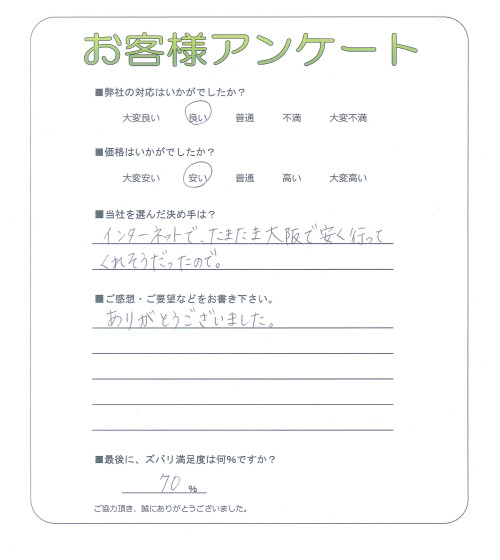 お客様アンケート
■弊社の対応はいかがでしたか？
大変良い 良い 普通 不満 大変不満
■価格はいかがでしたか？
大変安い 安い 普通 高い 大変高い
■当社を選んだ決め手は？
インターネットで、たまたま大阪で安く行って
くれそうだったので。
■ご感想・ご要望などをお書き下さい。
ありがとうございました。
■最後に、ズバリ満足度は何%ですか？
70 %
ご協力頂き、誠にありがとうございました。